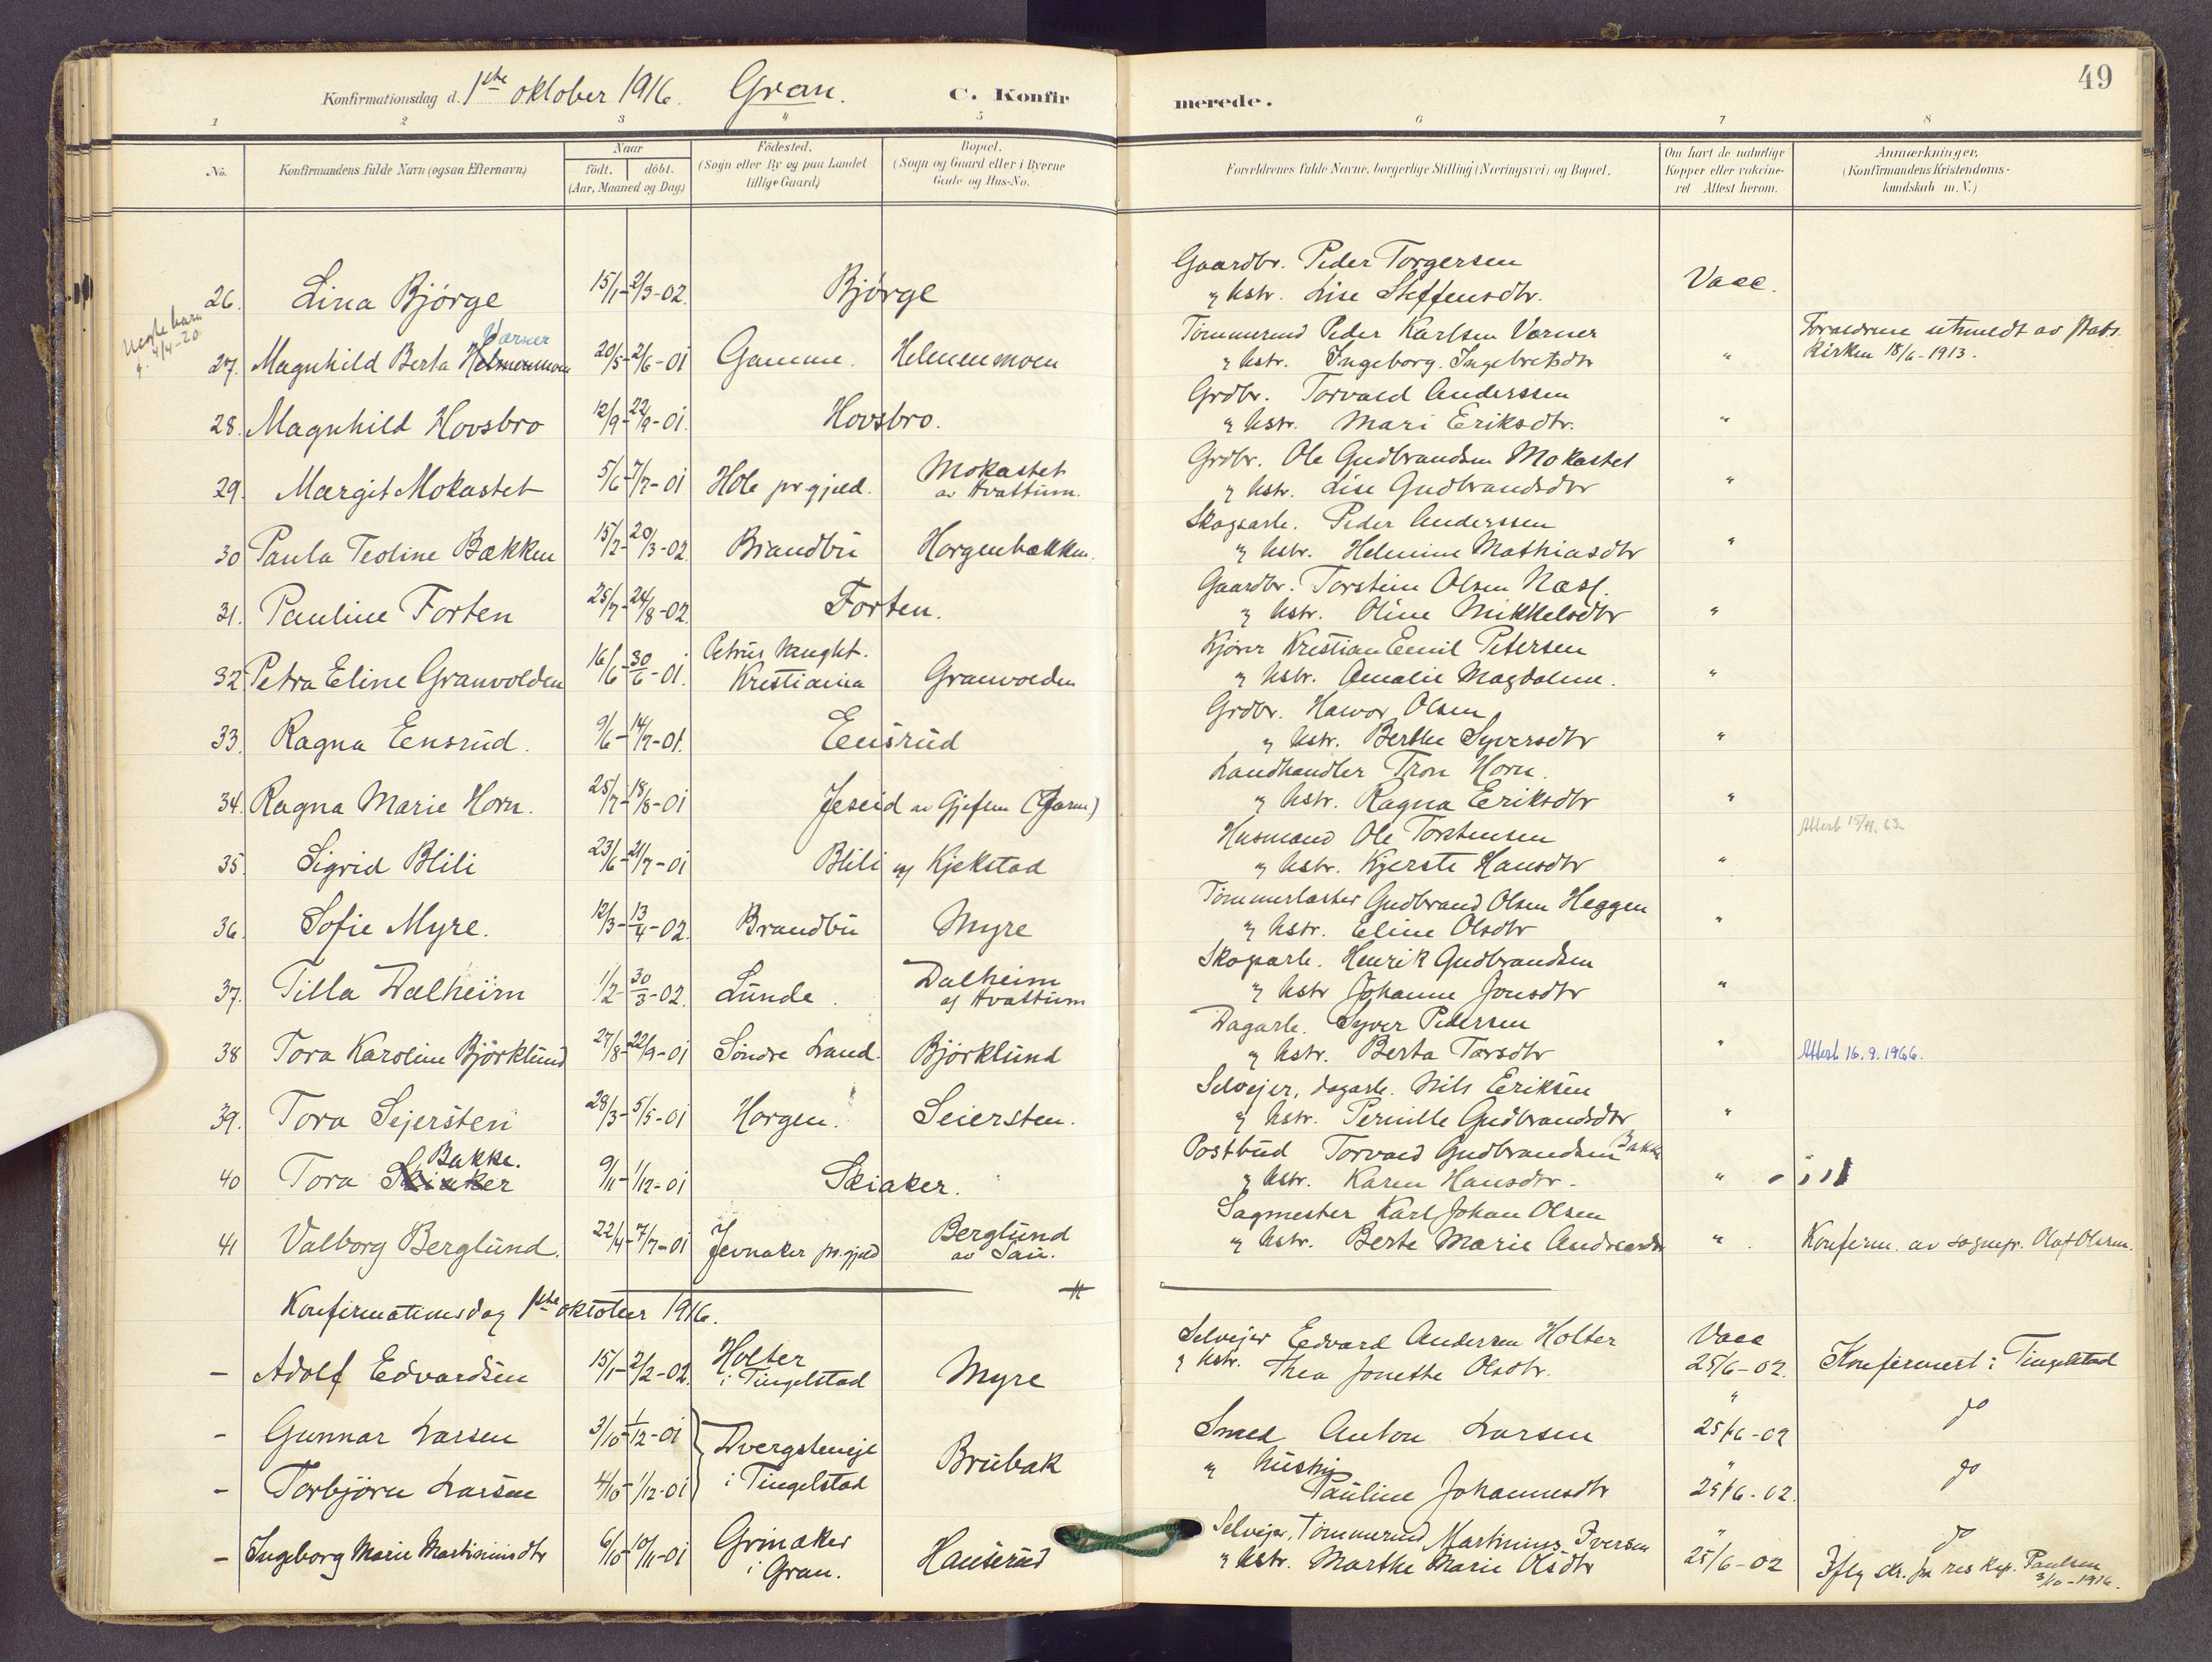 49
Konfirmationsdag d. 1ste oktober 1916. Gran. C. Konfirmerede.
1 2 3 4 5 6 7 8
No. Konfirmandens fulde Navn (ogsaa Efternavn) Naar födt. döbt. (Aar, Maaned og Dag) Födested. (Sogn eller By og paa Landet tillige Gaard) Bopæl. (Sogn og Gaard eller i Byerne Gade og Hus-No. Forældrenes fulde Navne, borgerlige Stilling (Næringsvei) og Bopæl. Om havt de naturlige Kopper eller vakcineret Attest herom. Anmærkninger. (Konfirmandens Kristendomskundskab m. V.)
Gaardbr. Peder Torgersen
26. Lina Bjørge 15/1 - 2/3-02. Bjørge " hstr. Lise Steffensdtr. Vacc.
Varner Tømmermd Peder Karlsen Varner Forældrene utmeldt av stats-
4/4-20
27. Magnhild Berta Helmenmoen 20/5 - 2/6-01 Gamme. Helmenmoen " hstr. Ingeborg Ingebretsdtr " kirken 18/6-1913.
Grdbr. Torvald Anderssen
28. Magnhild Hovsbro 12/9 - 22/9-01. Hovsbro. " hstr. Mari Eriksdtr. "
Grdbr. Ole Gudbrandsen Mokastet
29. Margit Mokastet 5/6 - 7/7-01 Hole pr.gjeld. Mokastet av Hvattum. " hstr. Lise Gudbrandsdtr "
Skogsarb. Peder Anderssen
30 Paula Teoline Bækken 15/2 - 20/3-02. Brandbu Horgenbækken. " hstr. Helmine Mathiasdtr "
Gaardbr. Torstein Olsen Næsf.
31. Pauline Forten 25/7 - 24/8-02. Forten. " hstr. Oline Mikkelsdtr "
Petrus Kristiania Kjører Kristian Emil Petersen
32 Petra Eline Granvolden 16/6 - 30/6-01. Granvolden " hstr. Amalie Magdalene. "
Grdbr. Hawor Olsen
33. Ragna Eensrud. 9/6 - 14/7-01. Eensrud " hstr. Berthe Syversdtr "
Landhandler Tron Horn.
34. Ragna Marie Horn. 25/7 - 18/8-01 Jeseid av Gjefsen (Jaren) " hstr. Ragna Eriksdtr "
Husmand Ole Torstensen Attest 15/11. 63.
35. Sigrid Blili 23/6 - 21/7-01 Blili af Kjekstad " hstr. Kjersti Hansdtr "
Tømmerlaster Gudbrand Olsen Heggen
36. Sofie Myre. 12/3 - 13/4-02. Brandbu Myre " hstr. Eline Olsdtr "
Skogarb. Henrik Gudbrandsen
37. Tilla Dalheim 1/2 - 30/3-02. Lunde. Dalheim af Hvattum " hstr Johanne Jonsdtr "
Dagarb. Syver Pedersen
38 Tora Karoline Bjørklund 27/8 - 22/9-01 Søndre Land. Bjørklund " hstr. Berta Larsdtr " Attest 16.9.1966.
Selveier, dagarb. Nils Eriksen
39. Tora Sejersten 28/3 - 5/5-01 Horgen. Seiersten. " hstr. Pernille Gudbrandsdtr "
Bakke. Postbud Torvald Gudbrandsen Bakke
40 Tora Skiaker 9/11 - 1/12-01 Skiaker. " hstr. Karen Hansdtr. "
Sagmester Karl Johan Olsen
41 Valborg Berglund. 22/4 - 7/7-01 Jevnaker pr.gjeld Berglund av Sau. " hstr. Berte Marie Andreasdtr " Konfirm. av sognepr. Olaf Olsen.
Konfirmationsdag 1ste oktober 1916.
Selvejer Edvard Andersen Holter Vacc
- Adolf Edvardsen 15/1 - 2/2-02. Holter i Tingelstad Myre " hstr. Thea Jonette Olsdtr. 25/6-02. Konfirmert i Tingelstad
- Gunnar Larsen 3/10 - 1/12-01 Dvergsteneje i Tingelstad Brubak Smed Anton Larsen " 25/6-02 do
- Torbjørn Larsen 4/10 - 1/12-01 " hustru Pauline Johannesdtr " 25/6-02. do
Selvejer, Tømmermd Martinius Iversen " do
- Ingeborg Marie Martiniusdtr 6/10 - 10/11-01 Grinaker i Gran. Hanserud " hstr. Marthe Marie Olsdtr 25/6-02 Iflg skr. fra res kap. Paulsen 3/10-1916.